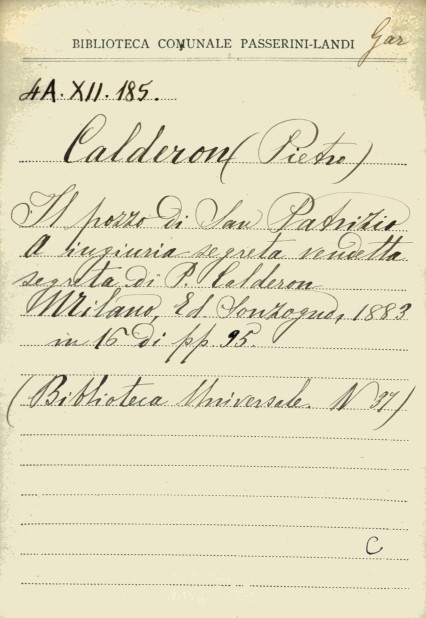 BIBLIOTECA COMUNALE PASSERINI-LANDI
Gar
4A. XII. 185.
Calderon (Pietro)
Il pozzo di San Patrizio
A ingiuria segreta vendetta
segreta di P. Calderon
Milano, Ed. Sonzogno, 1883
in 16 di pp. 95.
(Biblioteca Universale. N 37)
C